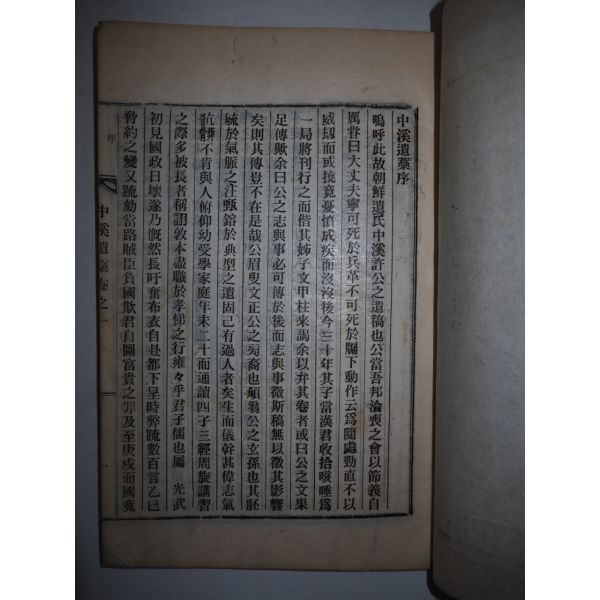 中溪遺藁序
嗚呼此故朝鮮遺民中溪許公之遺稿也公當吾邦淪喪之會以節義自
厲甞曰大丈夫寧可死於兵革不可死於牖下動作云爲隨處勁直不以
威刼而或撓竟憂憤成疾而沒沒後今三十年其子當漢君收拾咳唾爲
一局將刊行之而偕其姊子文甲柱來謁余以弁其卷者或曰公之文果
足傳歟余曰公之志與事必可傳於後而志與事微斯稿無以徵其影響
矣則其傳豈不在是哉公眉叟文正公之旁裔也顧翁公之玄孫也其胚
毓於氣脈之注甄鎔於典型之遺固已有過人者矣生而儀幹甚偉志氣
骯髒不肯與人俯仰幼受學家庭年未二十而通讀四子三經周旋講習
之際多被長者稱詡敦本盡職於孝悌之行雍々乎君子儒也屬　光武
初見國政日壞遂乃慨然長吁奮布衣自赴都下呈時弊疏數百言乙巳
脅約之變又疏劾當路賊臣負國欺君自圖富貴之罪及至庚戌而國竟
序
中溪遺藁卷之一
一